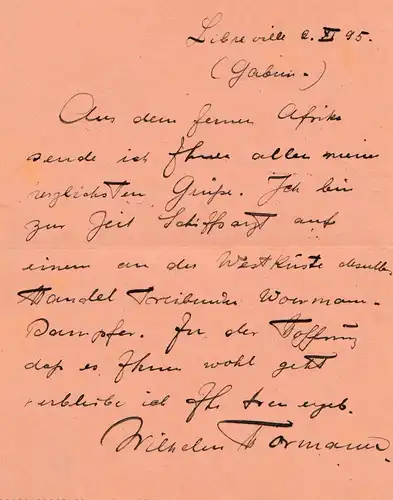 Libreville 2. XI 95.
(Gabun.)
Aus dem fernen Afrika
sende ich Ihnen allen meine
herzlichsten Grüße. Ich bin
zur Zeit Schiffsarzt auf
einem an der Westküste
Handel treibenden Woermann-
Dampfer. In der Hoffnung
daß es Ihnen wohl geht
verbleibe ich Ihr treu ergeb.
Wilhelm